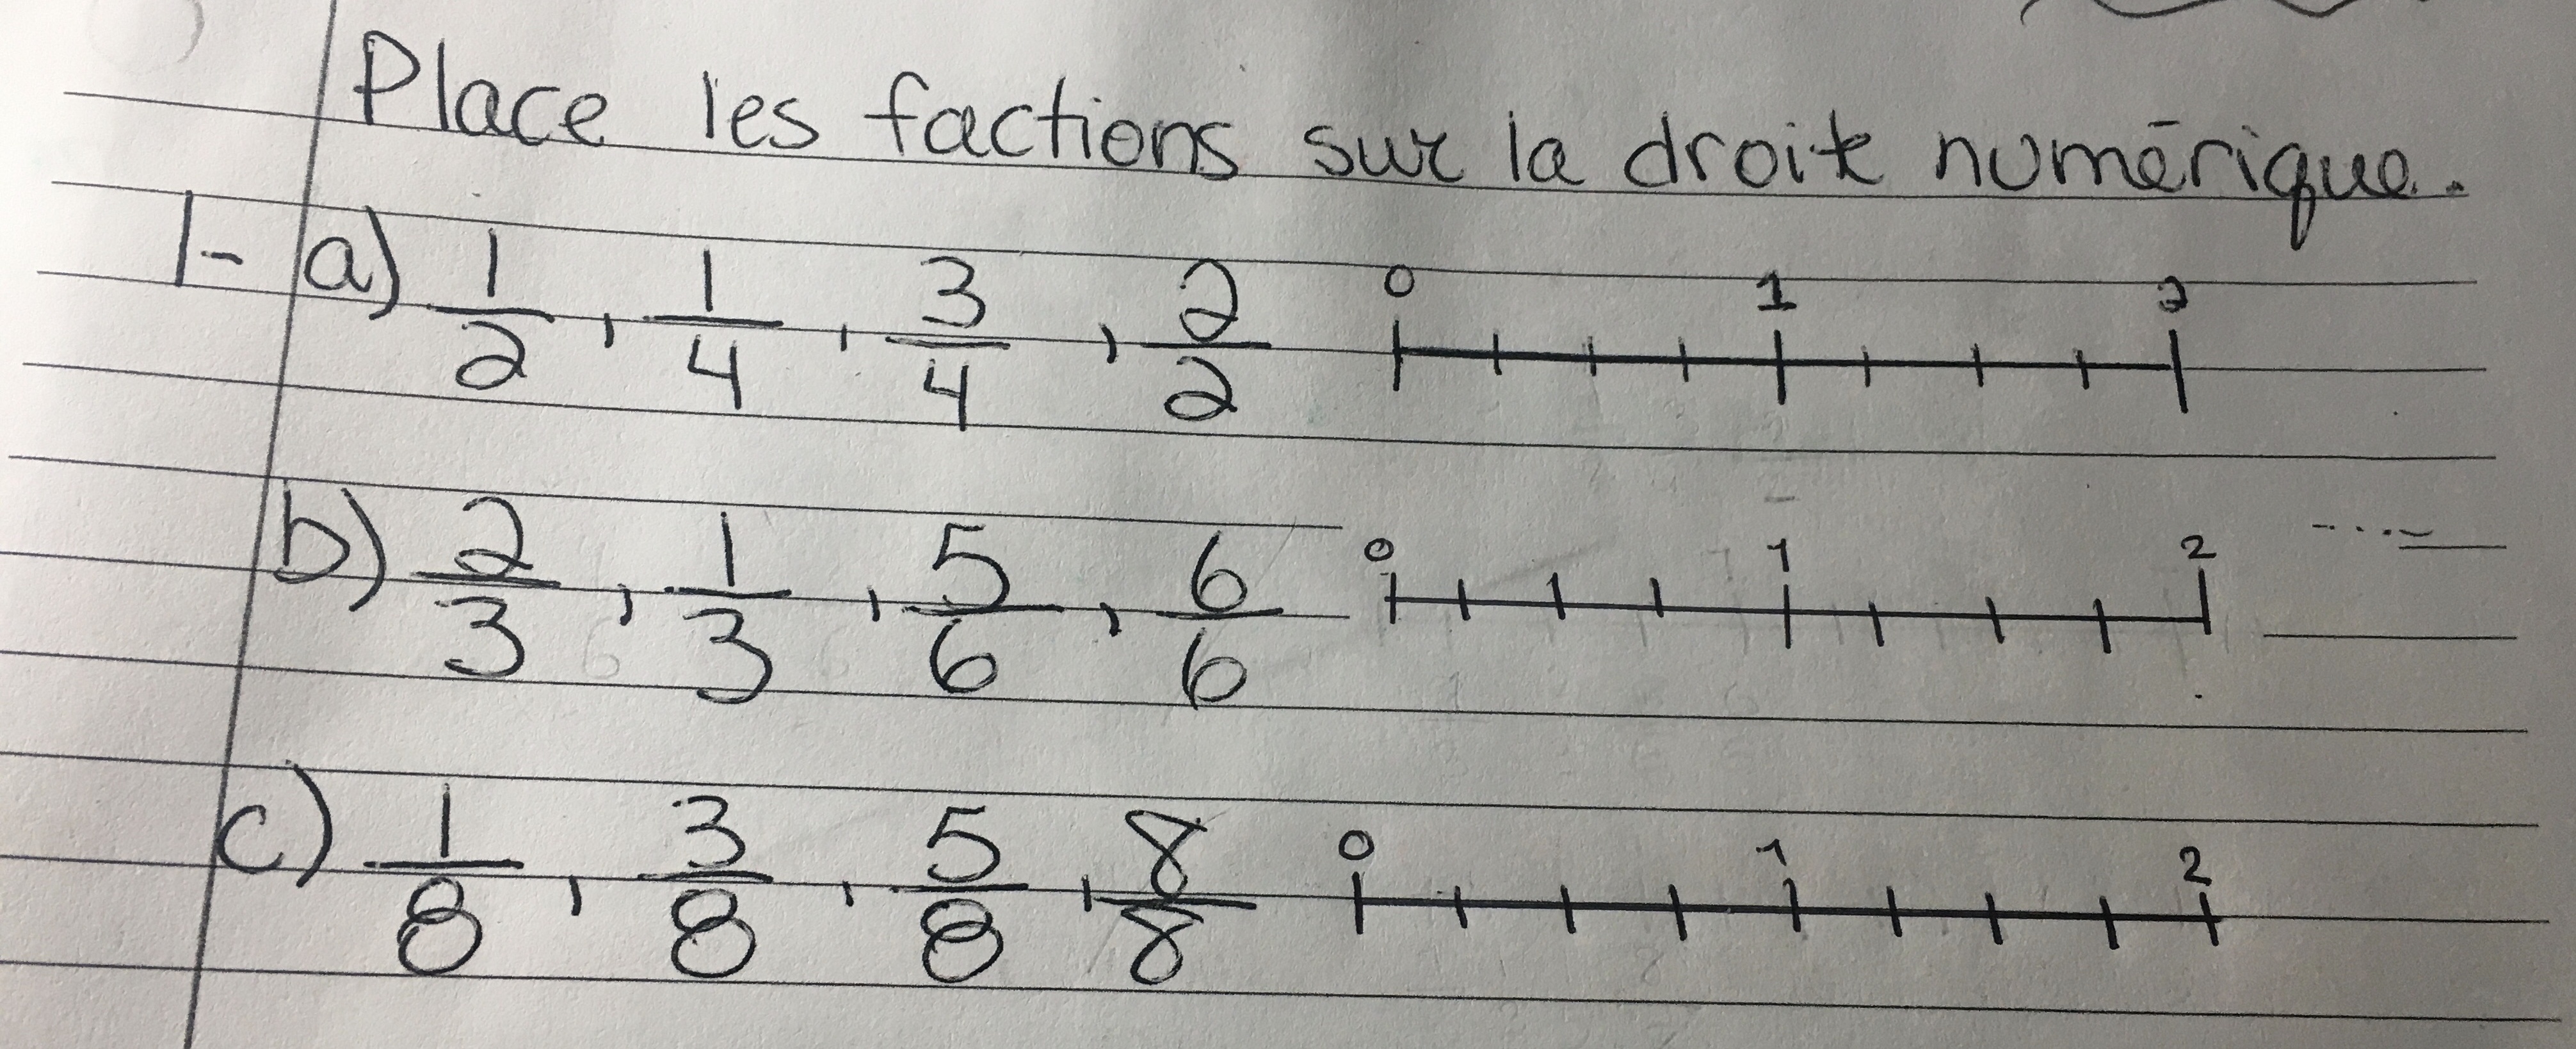 Place les factions sur la droite numérique.
1- a) 1/2 , 1/4 , 3/4 , 2/2 0 1 2
b) 2/3 , 1/3 , 5/6 , 6/6 0 1 2
c) 1/8 , 3/8 , 5/8 , 8/8 0 1 2